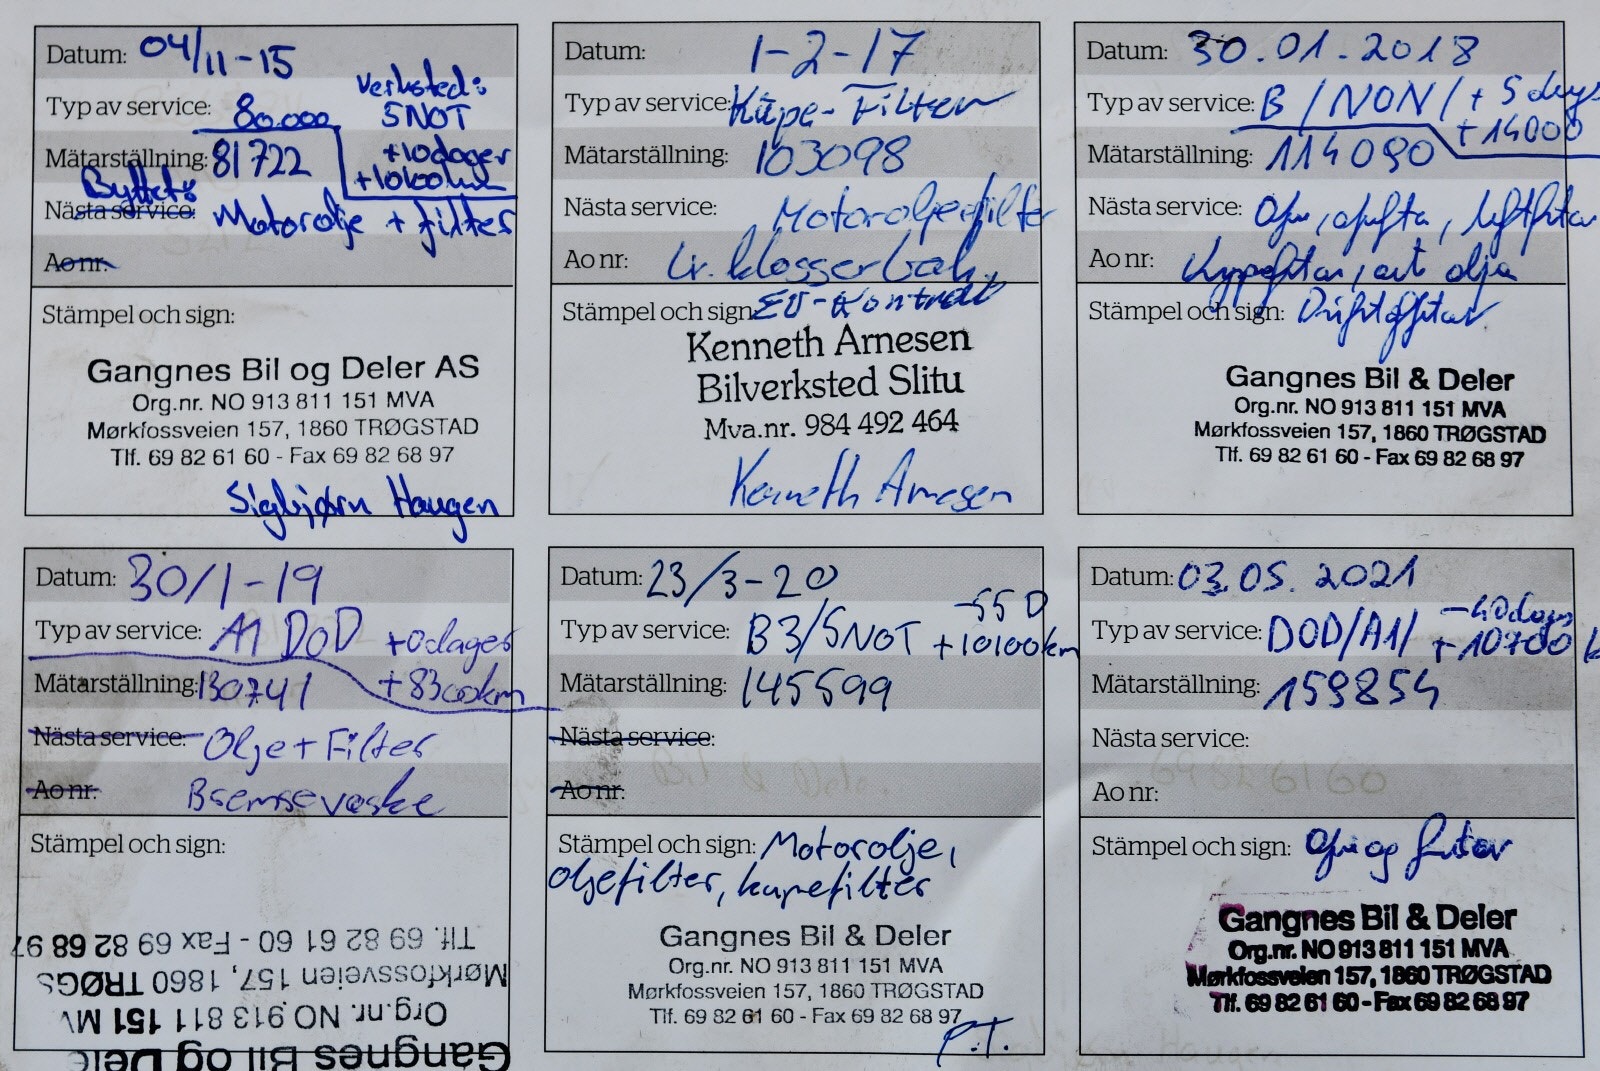 Datum: 04/11-15
Verksted:
Typ av service: 80.000 5NOT
Mätarställning: 81722 +10dager
+10100km
Byttet:
Nästa service: Motorolje + filter
Ao nr:
Stämpel och sign:
Gangnes Bil og Deler AS
Org.nr. NO 913 811 151 MVA
Mørkfossveien 157, 1860 TRØGSTAD
Tlf. 69 82 61 60 - Fax 69 82 68 97
Sigbjørn Haugen
Datum: 1-2-17
Typ av service: Kupe-Filter
Mätarställning: 103098
Nästa service: Motorolje+filter
Ao nr: Lr. klosser bak,
Stämpel och sign: EU-Kontroll
Kenneth Arnesen
Bilverksted Slitu
Mva.nr. 984 492 464
Kenneth Arnesen
Datum: 30.01.2018
Typ av service: B/NON/ + 5 days
+14000
Mätarställning: 114090
Nästa service:
Ao nr: olja
Stämpel och sign:
Gangnes Bil & Deler
Org.nr. NO 913 811 151 MVA
Mørkfossveien 157, 1860 TRØGSTAD
Tlf. 69 82 61 60 - Fax 69 82 68 97
Datum: 30/1-19
Typ av service: A1 DOD +0dager
Mätarställning: 130741 +8300km
Nästa service: Olje+Filter
Ao nr: Bremsevæske
Stämpel och sign:
Gangnes Bil og Dele
Org.nr. NO 913 811 151 MV
Mørkfossveien 157, 1860 TRØGS
Tlf. 69 82 61 60 - Fax 69 82 68 97
Datum: 23/3-20
-55 D
Typ av service: B3/5NOT +10100km
Mätarställning: 145599
Nästa service:
Ao nr:
Stämpel och sign: Motorolje,
oljefilter, kupefilter
Gangnes Bil & Deler
Org.nr. NO 913 811 151 MVA
Mørkfossveien 157, 1860 TRØGSTAD
Tlf. 69 82 61 60 - Fax 69 82 68 97
P.T.
Datum: 03.05.2021
-40days
Typ av service: DOD/A1/ +10700 k
Mätarställning: 159854
Nästa service:
Ao nr:
Stämpel och sign: og
Gangnes Bil & Deler
Org.nr. NO 913 811 151 MVA
Mørkfossveien 157, 1860 TRØGSTAD
Tlf. 69 82 61 60 - Fax 69 82 68 97